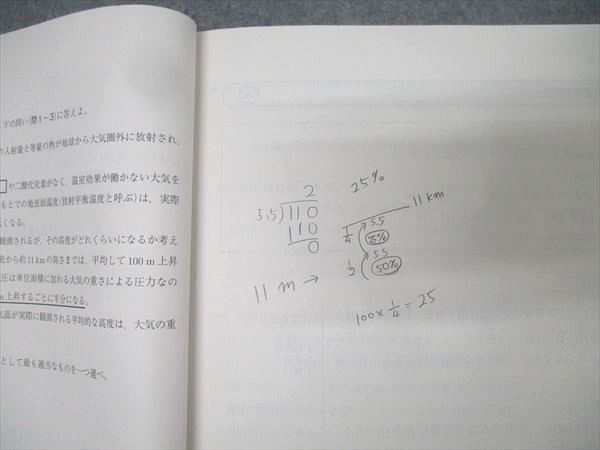 下の問い(問1~3)に答えよ。
の入射量と等量の熱が地球から大気圏外に放射され,
や二酸化炭素がなく, 温室効果が働かない大気を
もとでの地表面温度(放射平衡温度と呼ぶ)は, 実際
くなる。
観測されるが, その高度がどれくらいになるか考え
表から約11kmの高さまでは, 平均して100m上昇
圧は単位面積に加わる大気の重さによる圧力なの
m上昇するごとに半分になる。
気温が実際に観測される平均的な高度は, 大気の重
として最も適当なものを一つ選べ。
2
5.5)110
110
0
25%
11 km
1/4
5.5
25%
5.5
1/2
50%
11 m →
100×1/4=25